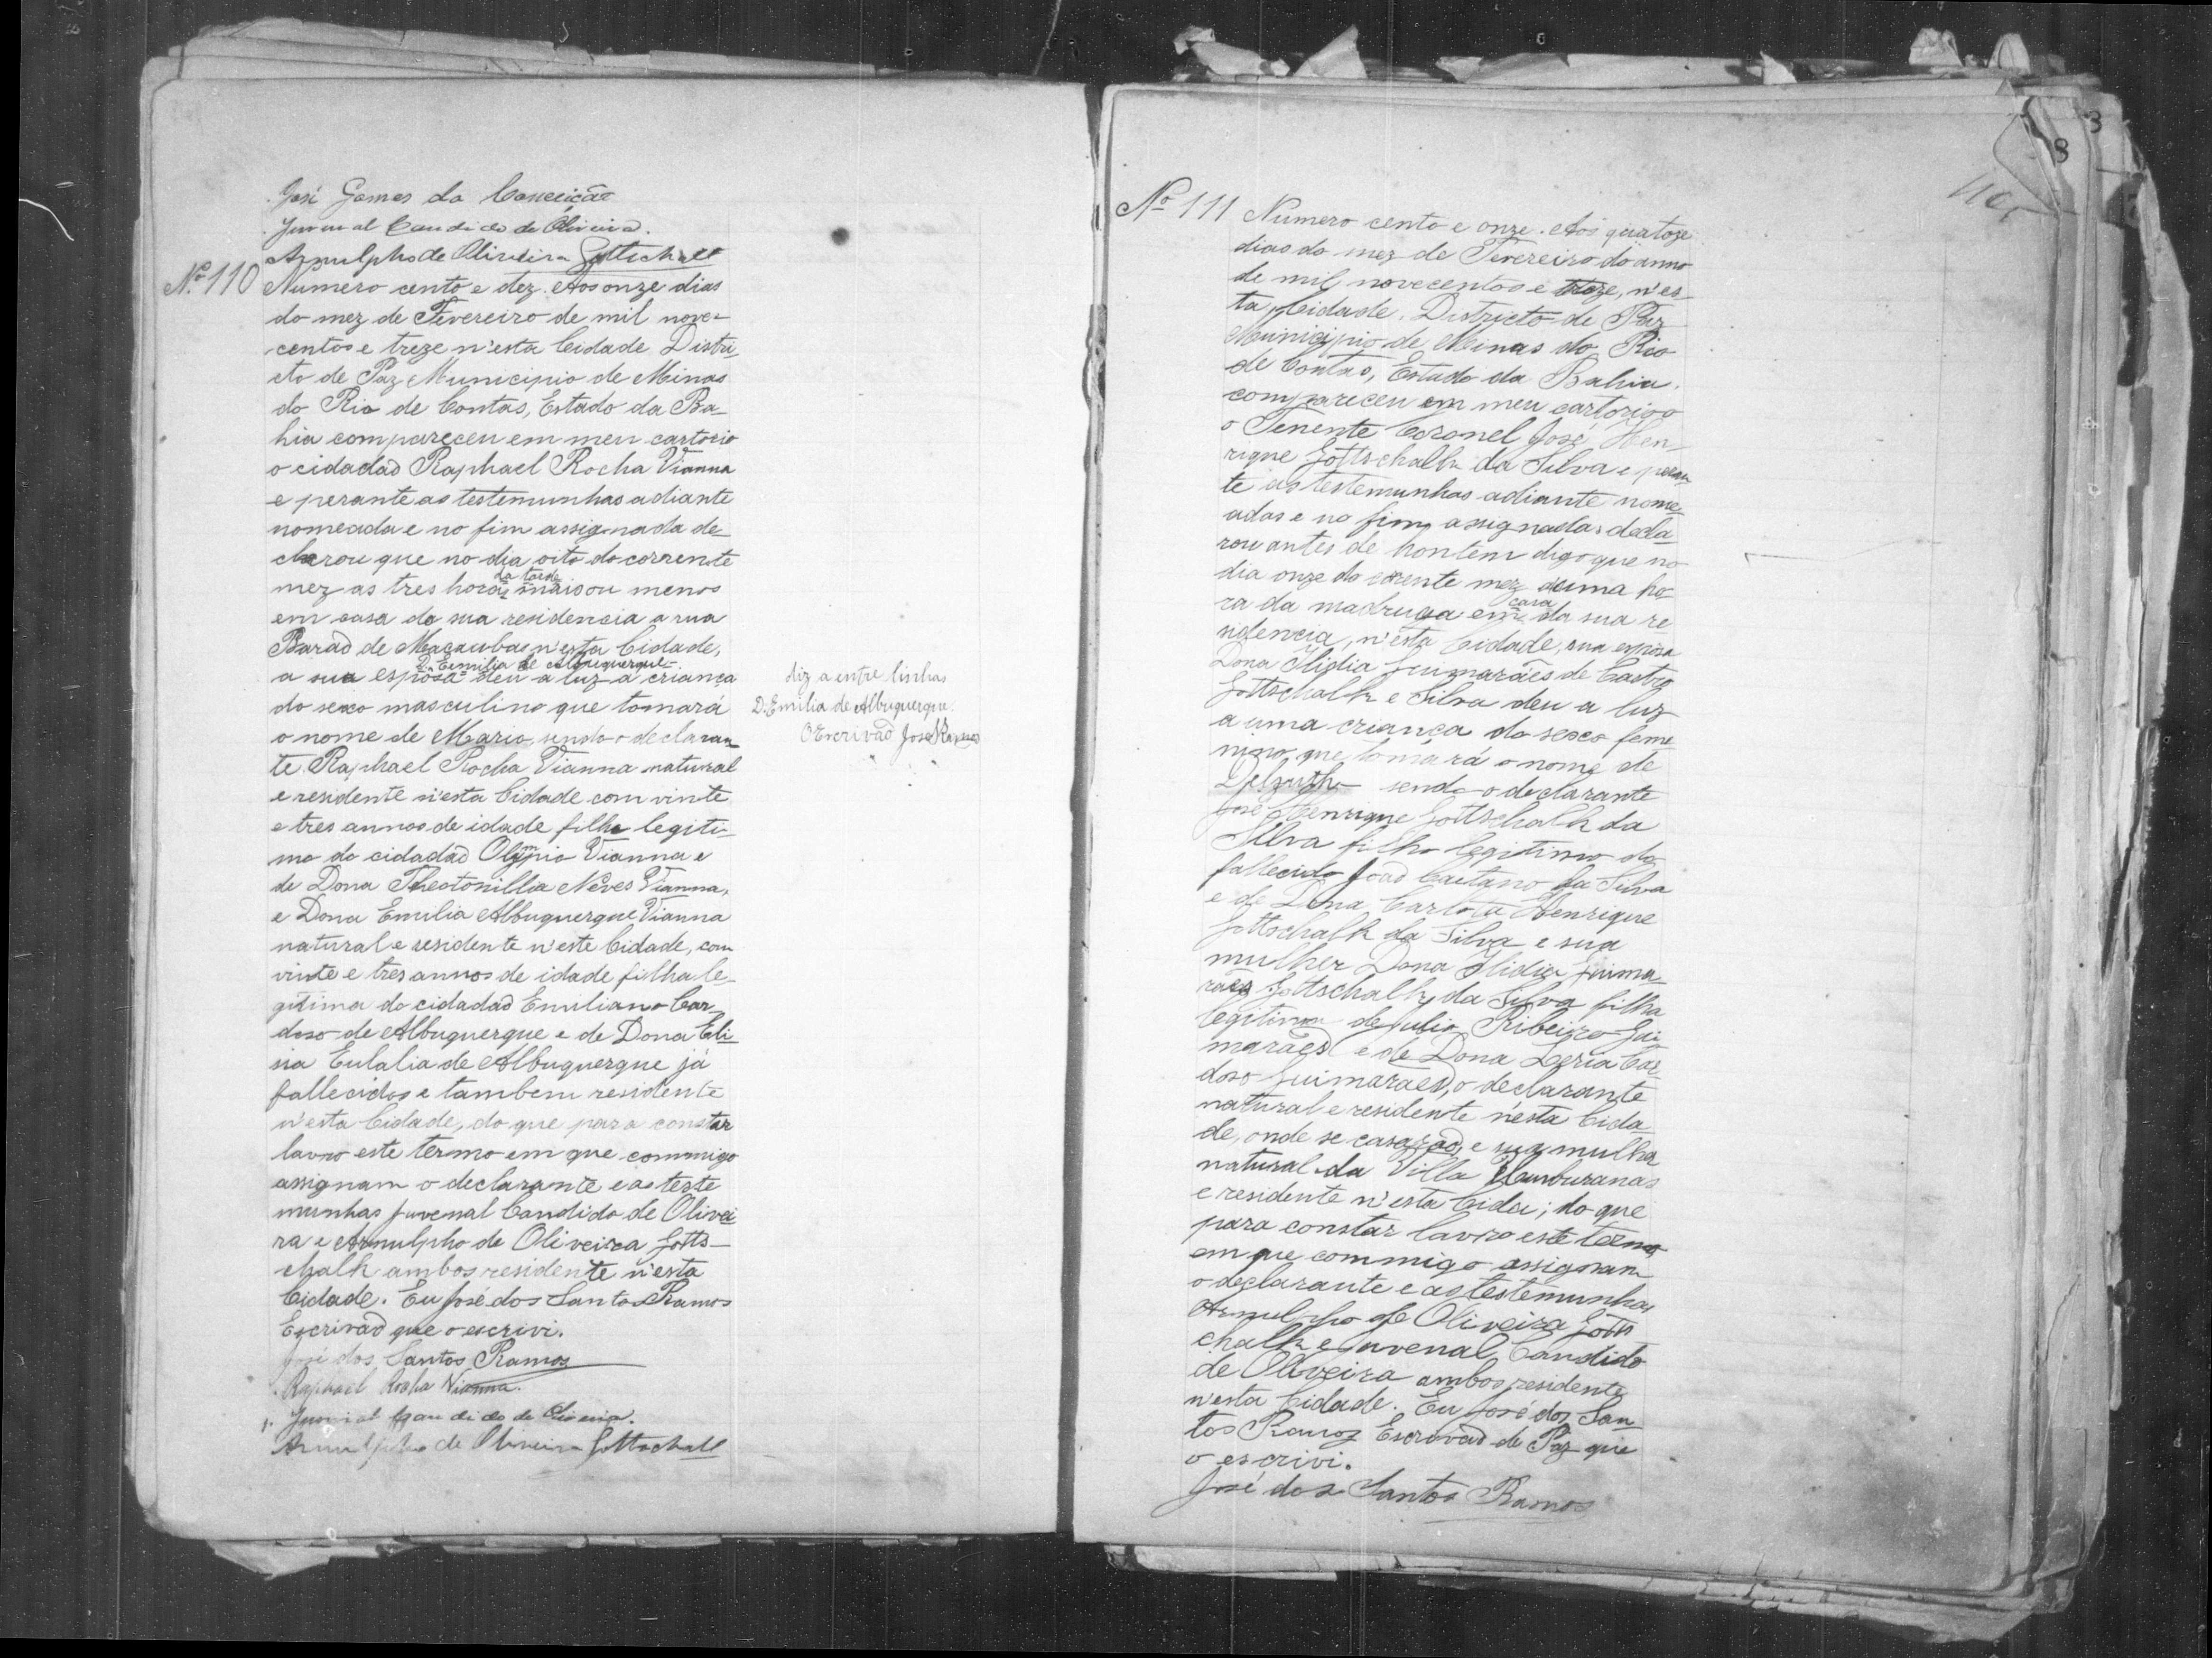 José Gomes da Conceição
Juvenal Candido de Oliveira.
Arnulpho de Oliveira Gottschalk
Nº 110 Numero cento e dez. Aos onze dias
do mez de Fevereiro de mil nove-
centos e treze n'esta Cidade Distri-
cto de Paz Municipio de Minas
do Rio de Contas, Estado da Ba-
hia compareceu em meu cartorio
o cidadaõ Raphael Rocha Vianna
e perante as testemunhas adiante
nomeada e no fim assignada de-
clarou que no dia oito do corrente
mez as tres horas da tarde mais ou menos
em casa da sua residencia a rua
Baraõ de Macaubas n'esta Cidade,
a sua esposa D. Emilia de Albuquerque deu a luz a criança
do sexo masculino que tomará
o nome de Mario, sendo o declaran-
te Raphael Rocha Vianna natural
e residente n'esta Cidade com vinte
e tres annos de idade filho legiti-
mo do cidadaõ Olympio Vianna e
de Dona Theotonilla Neves Vianna,
e Dona Emilia Albuquerque Vianna
natural e residente n'este Cidade, com
vinte e tres annos de idade filha le-
gitima do cidadaõ Emiliano Car-
doso de Albuquerque e de Dona Eli-
sia Eulalia de Albuquerque já
fallecidos e tambem residente
n'esta Cidade, do que para constar
lavro este termo em que commigo
assignam o declarante e as teste
munhas Juvenal Candido de Olivei
ra e Arnulpho de Oliveira Gotts-
chalk ambos residente n'esta
Cidade. Eu José dos Santos Ramos
Escrivaõ que o escrivi.
José dos Santos Ramos
Raphael Rocha Vianna.
Juvenal Candido de Oliveira.
Arnulpho de Oliveira Gottschalk
diz a entre linhas
D. Emilia de Albuquerque.
O Escrivaõ José Ramos
3
8
Nº 111 Numero cento e onze. Aos quatoze
dias do mez de Fevereiro do anno
de mil novecentos e treze, n'es-
ta Cidade, Districto de Paz
Municipio de Minas do Rio
de Contas, Estado da Bahia,
compareceu em meu cartorio o
o Tenente Coronel José Hen-
rique Gottschalk da Silva e peran-
te as testemunhas adiante nome-
adas e no fim assignadas decla-
rou antes de hontem digo que no
dia onze do corente mez a uma ho-
ra da madruga em casa da sua re
sidencia, n'esta Cidade, sua esposa
Dona Ilidia Guimarães de Castro
Gottschalk e Silva deu a luz
a uma criança do sexo feme
nino, que tomará o nome de
sendo o declarante
José Henrique Gottschalk da
Silva filho legitimo do
fallecido Joaõ Caetano da Silva
e de Dona Carlota Henrique
Gottschalk da Silva e sua
mulher Dona Ilidia Guima-
rães Gottschalk da Silva filha
legitima de Julio Ribeiro Gui-
marães e de Dona Car-
doso Guimarães, o declarante
natural e residente n'esta Cida
de, onde se casaraõ, e sua mulher
natural da Villa Umburanas
e residente n'esta Cida; do que
para constar lavro este termo
em que commigo assignam
o declarante e as testemunhas
Arnulpho de Oliveira Gotts
chalk e Juvenal Candido
de Oliveira ambos residente
n'esta Cidade. Eu José dos San-
tos Ramos Escrivaõ de Paz que
o escrivi.
José dos Santos Ramos